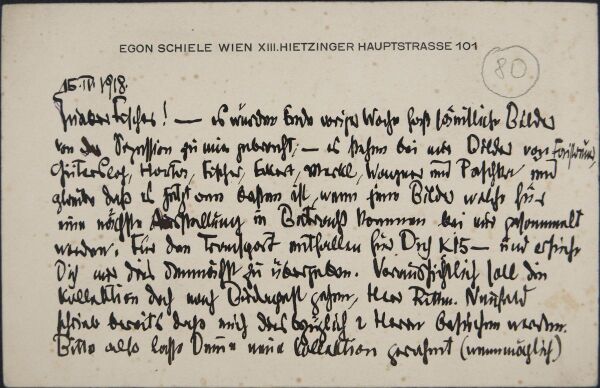 EGON SCHIELE WIEN XIII. HIETZINGER HAUPTSTRASSE 101
80
15. IV 1918.
Lieber Fischer! — es wurden Ende voriger Woche fast sämtliche Bilder
von der Sezession zu mir gebracht; — es stehen bei mir Bilder von Faistauer,
Gütersloh, Harta, Fischer, Merkl, Wagner und und
glaube daß es jetzt am besten ist, wenn jene Bilder welche für
eine nächste Ausstellung in Betracht kommen bei mir gesammelt
werden. Für den Transport entfallen für Dich K 15 — und ersuche
Dich mir dies demnächst zu übergeben. Voraussichtlich soll die
Kollektion doch nach Budapest gehen, Herr Rittm. Neufeld
schrieb bereits daß mich diesbezüglich 2 Herrn besuchen werden.
Bitte also lasse Deine neue Kollektion gerahmt (wenn möglich)